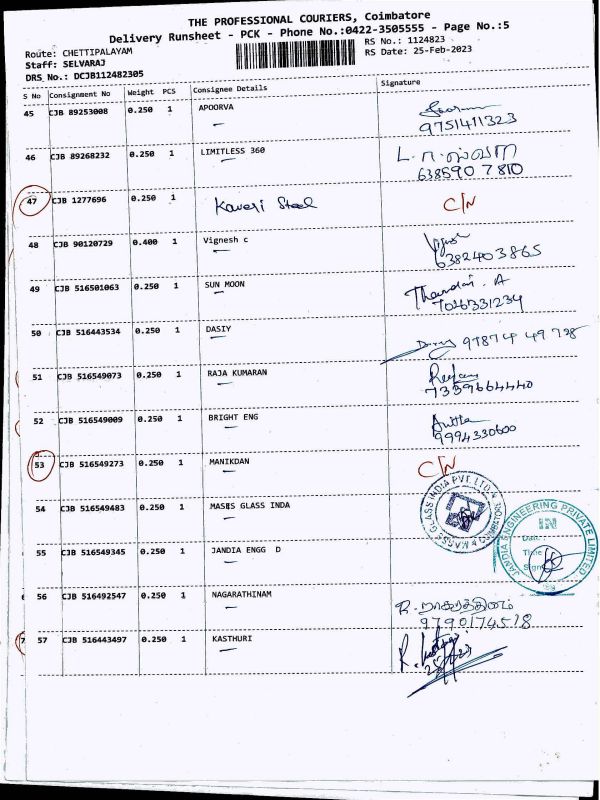 THE PROFESSIONAL COURIERS, Coimbatore
Delivery Runsheet - PCK - Phone No.:0422-3505555 - Page No.:5
Route: CHETTIPALAYAM
RS No.: 1124823
Staff: SELVARAJ
RS Date: 25-Feb-2023
DRS No.: DCJB112482305
S No Consignment No Weight PCS Consignee Details Signature
45 CJB 89253008 0.250 1 APOORVA
9751411323
46 CJB 89268232 0.250 1 LIMITLESS 360
6385907810
47 CJB 1277696 0.250 1 Kaveri Steel C/N
48 CJB 90120729 0.400 1 Vignesh c
6382403865
49 CJB 516501063 0.250 1 SUN MOON
7026331234
50 CJB 516443534 0.250 1 DASIY 97874 49 738
51 CJB 516549073 0.250 1 RAJA KUMARAN
7339664440
52 CJB 516549009 0.250 1 BRIGHT ENG
9994330600
53 CJB 516549273 0.250 1 MANIKDAN C/N
54 CJB 516549483 0.250 1 MASES GLASS INDA
55 CJB 516549345 0.250 1 JANDIA ENGG D
JANDIA ENGINEERING PRIVATE LIMITED
IN
56 CJB 516492547 0.250 1 NAGARATHINAM
9790174518
57 CJB 516443497 0.250 1 KASTHURI